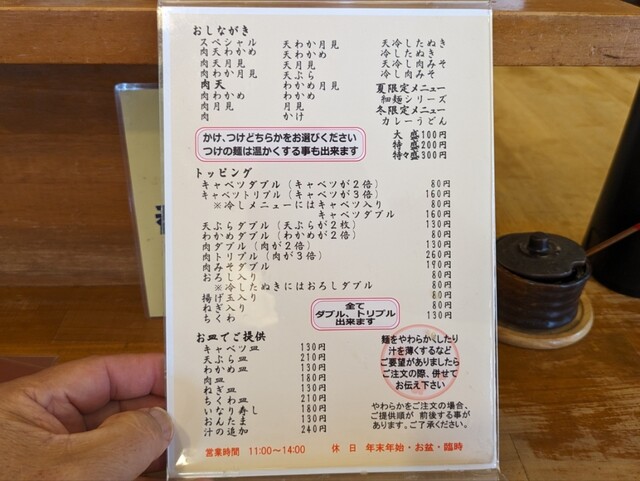 おしながき
スペシャル
肉天わかめ
肉天月見
肉わか月見
肉天
肉わかめ
肉月見
肉
天わか月見
天わかめ
天月見
天ぷら
わかめ月見
わかめ
月見
かけ
天冷したぬき
冷したぬき
天冷し肉みそ
冷し肉みそ
夏限定メニュー
細麺シリーズ
冬限定メニュー
カレーうどん
大盛100円
特盛200円
特々盛300円
かけ、つけどちらかをお選びください
つけの麺は温かくする事も出来ます
トッピング
キャベツダブル(キャベツが2倍) 80円
キャベツトリプル(キャベツが3倍) 160円
※冷しメニューにはキャベツ入り 80円
キャベツダブル 160円
天ぷらダブル(天ぷらが2枚) 130円
わかめダブル(わかめが2倍) 80円
肉ダブル(肉が2倍) 130円
肉トリプル(肉が3倍) 260円
肉みそダブル 190円
おろし入り 80円
※冷したぬきにはおろしダブル 80円
揚げ玉入り 80円
ねぎ入り 80円
ちくわ 130円
全て
ダブル、トリプル
出来ます
お皿でご提供
キャベツ皿 130円
天ぷら皿 210円
わかめ皿 130円
肉皿 180円
ねぎ皿 130円
ちくわ皿 210円
いなり寿し 180円
おんたま 130円
汁の追加 240円
麺をやわらかくしたり
汁を薄くするなど
ご要望がありましたら
ご注文の際、併せて
お伝え下さい
やわらかをご注文の場合、
ご提供順が 前後する事が
あります。ご了承ください。
営業時間 11:00～14:00 休日 年末年始・お盆・臨時